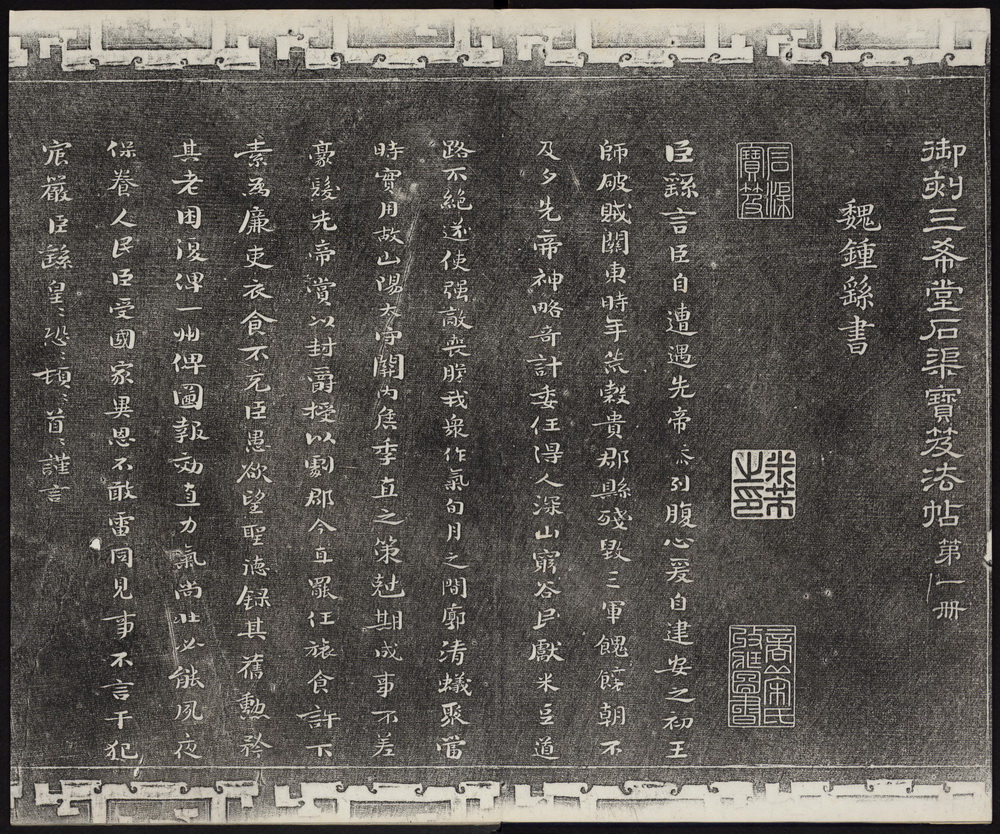 御刻三希堂石渠寶笈法帖第一冊
魏鍾繇書
石渠寶笈
米芾之印
臣繇言臣自遭遇先帝忝列腹心爰自建安之初王
師破賊關東時年荒穀貴郡縣殘毀三軍餽饟朝不
及夕先帝神略奇計委任得人深山窮谷民獻米豆道
路不絕遂使强敵喪膽我衆作氣旬月之間廓清蟻聚當
時實用故山陽太守關內侯季直之策尅期成事不差
豪髮先帝賞以封爵授以劇郡今直罷任旅食許下
素為廉吏衣食不充臣愚欲望聖德錄其舊勳矜
其老困復俾一州俾圖報効直力氣尚壯必能夙夜
保養人民臣受國家異恩不敢雷同見事不言干犯
宸嚴臣繇皇皇恐恐頓頓首首謹言